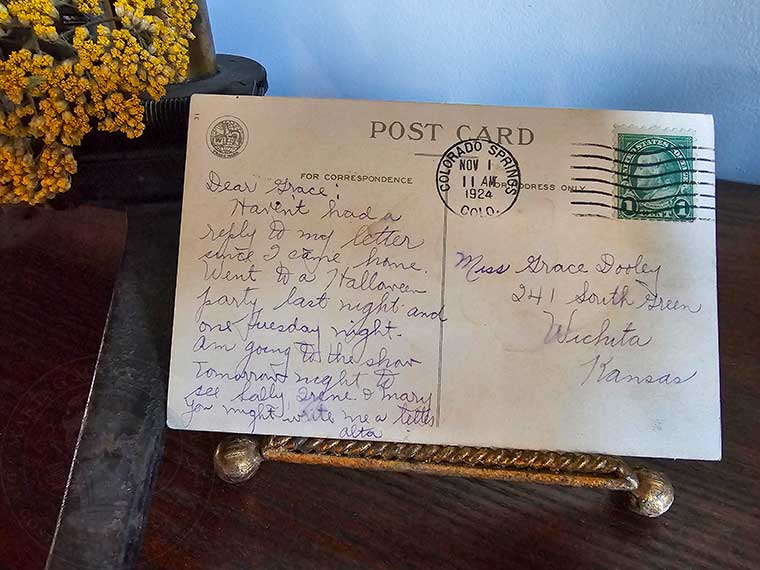 POST CARD
FOR CORRESPONDENCE
FOR ADDRESS ONLY
COLORADO SPRINGS
NOV 1
11 AM
1924
COLO.
UNITED STATES POSTAGE
1 1
Dear Grace:
Haven't had a
reply to my letter
since I came home.
Went to a Halloween
party last night and
one Tuesday night.
Am going to the show
tomorrow night to
see Sally, Irene & Mary
You might write me a letter
alta
Miss Grace Dooley
241 South Green
Wichita
Kansas